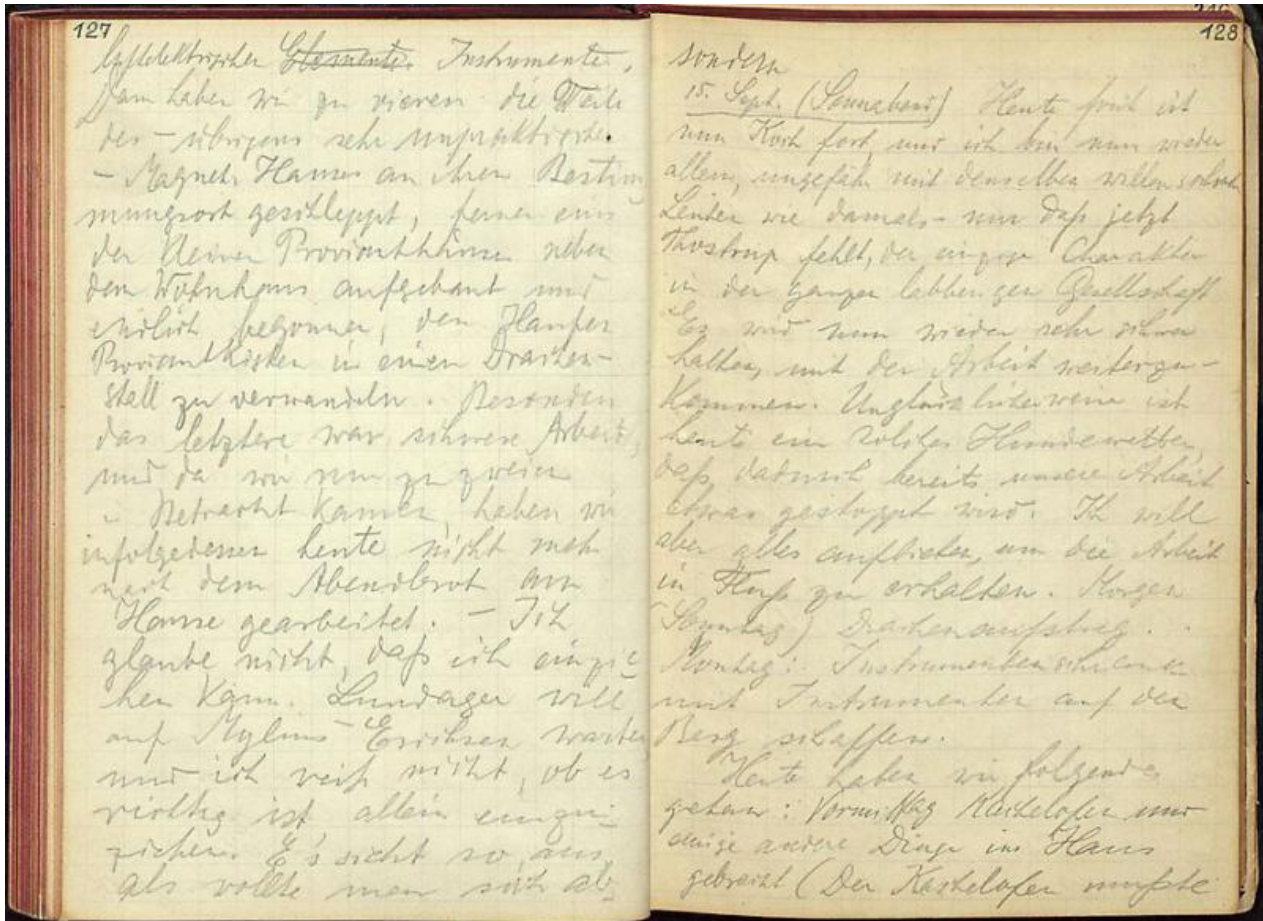 127
luftelektrischer Elemente. Instrumente.
Dann haben wir zu vieren die Teile
des - übrigens sehr unpraktischen
- Magnet. Hauses an ihren Bestim
mungsort geschleppt, ferner eins
der kleinen Provianthäuser neben
dem Wohnhaus aufgebaut und
endlich begonnen, den Haufen
Proviantkisten in einen Drachen-
stall zu verwandeln. Besonders
das letztere war schwere Arbeit,
und da wir nun zu zweien
Betracht kamen, haben wir
infolgedessen heute nicht mehr
nach dem Abendbrot am
Hause gearbeitet. - Ich
glaube nicht, daß ich einzie
hen kann. Lundager will
auf Mylius-Erichsen warten
und ich weiß nicht, ob es
richtig ist allein einzu-
ziehen. Es sieht so aus,
als wollte man sich ab
128
sondern
15. Sept. (Sonnabend) Heute früh ist
nun Koch fort, und ich bin nun wieder
allein, ungefähr mit denselben
Leuten wie damals, - nur daß jetzt
Thostrup fehlt, der einzige Charakter
in der ganzen labberigen Gesellschaft
Es wird nun wieder sehr schwer
halten, mit der Arbeit weiterzu-
kommen. Unglücklicherweise ist
heute ein solches Hundewetter,
daß dadurch bereits unsere Arbeit
etwas gestoppt wird. Ich will
aber alles aufbieten, um die Arbeit
in Fluß zu erhalten. Morgen
(Sonntag) Drachenaufstieg.
Montag: Instrumentenschrank
mit Instrumenten auf den
Berg schaffen.
Heute haben wir folgendes
getan: Vormittag Kachelofen und
einige andere Dinge ins Haus
gebracht (Der Kachelofen mußte